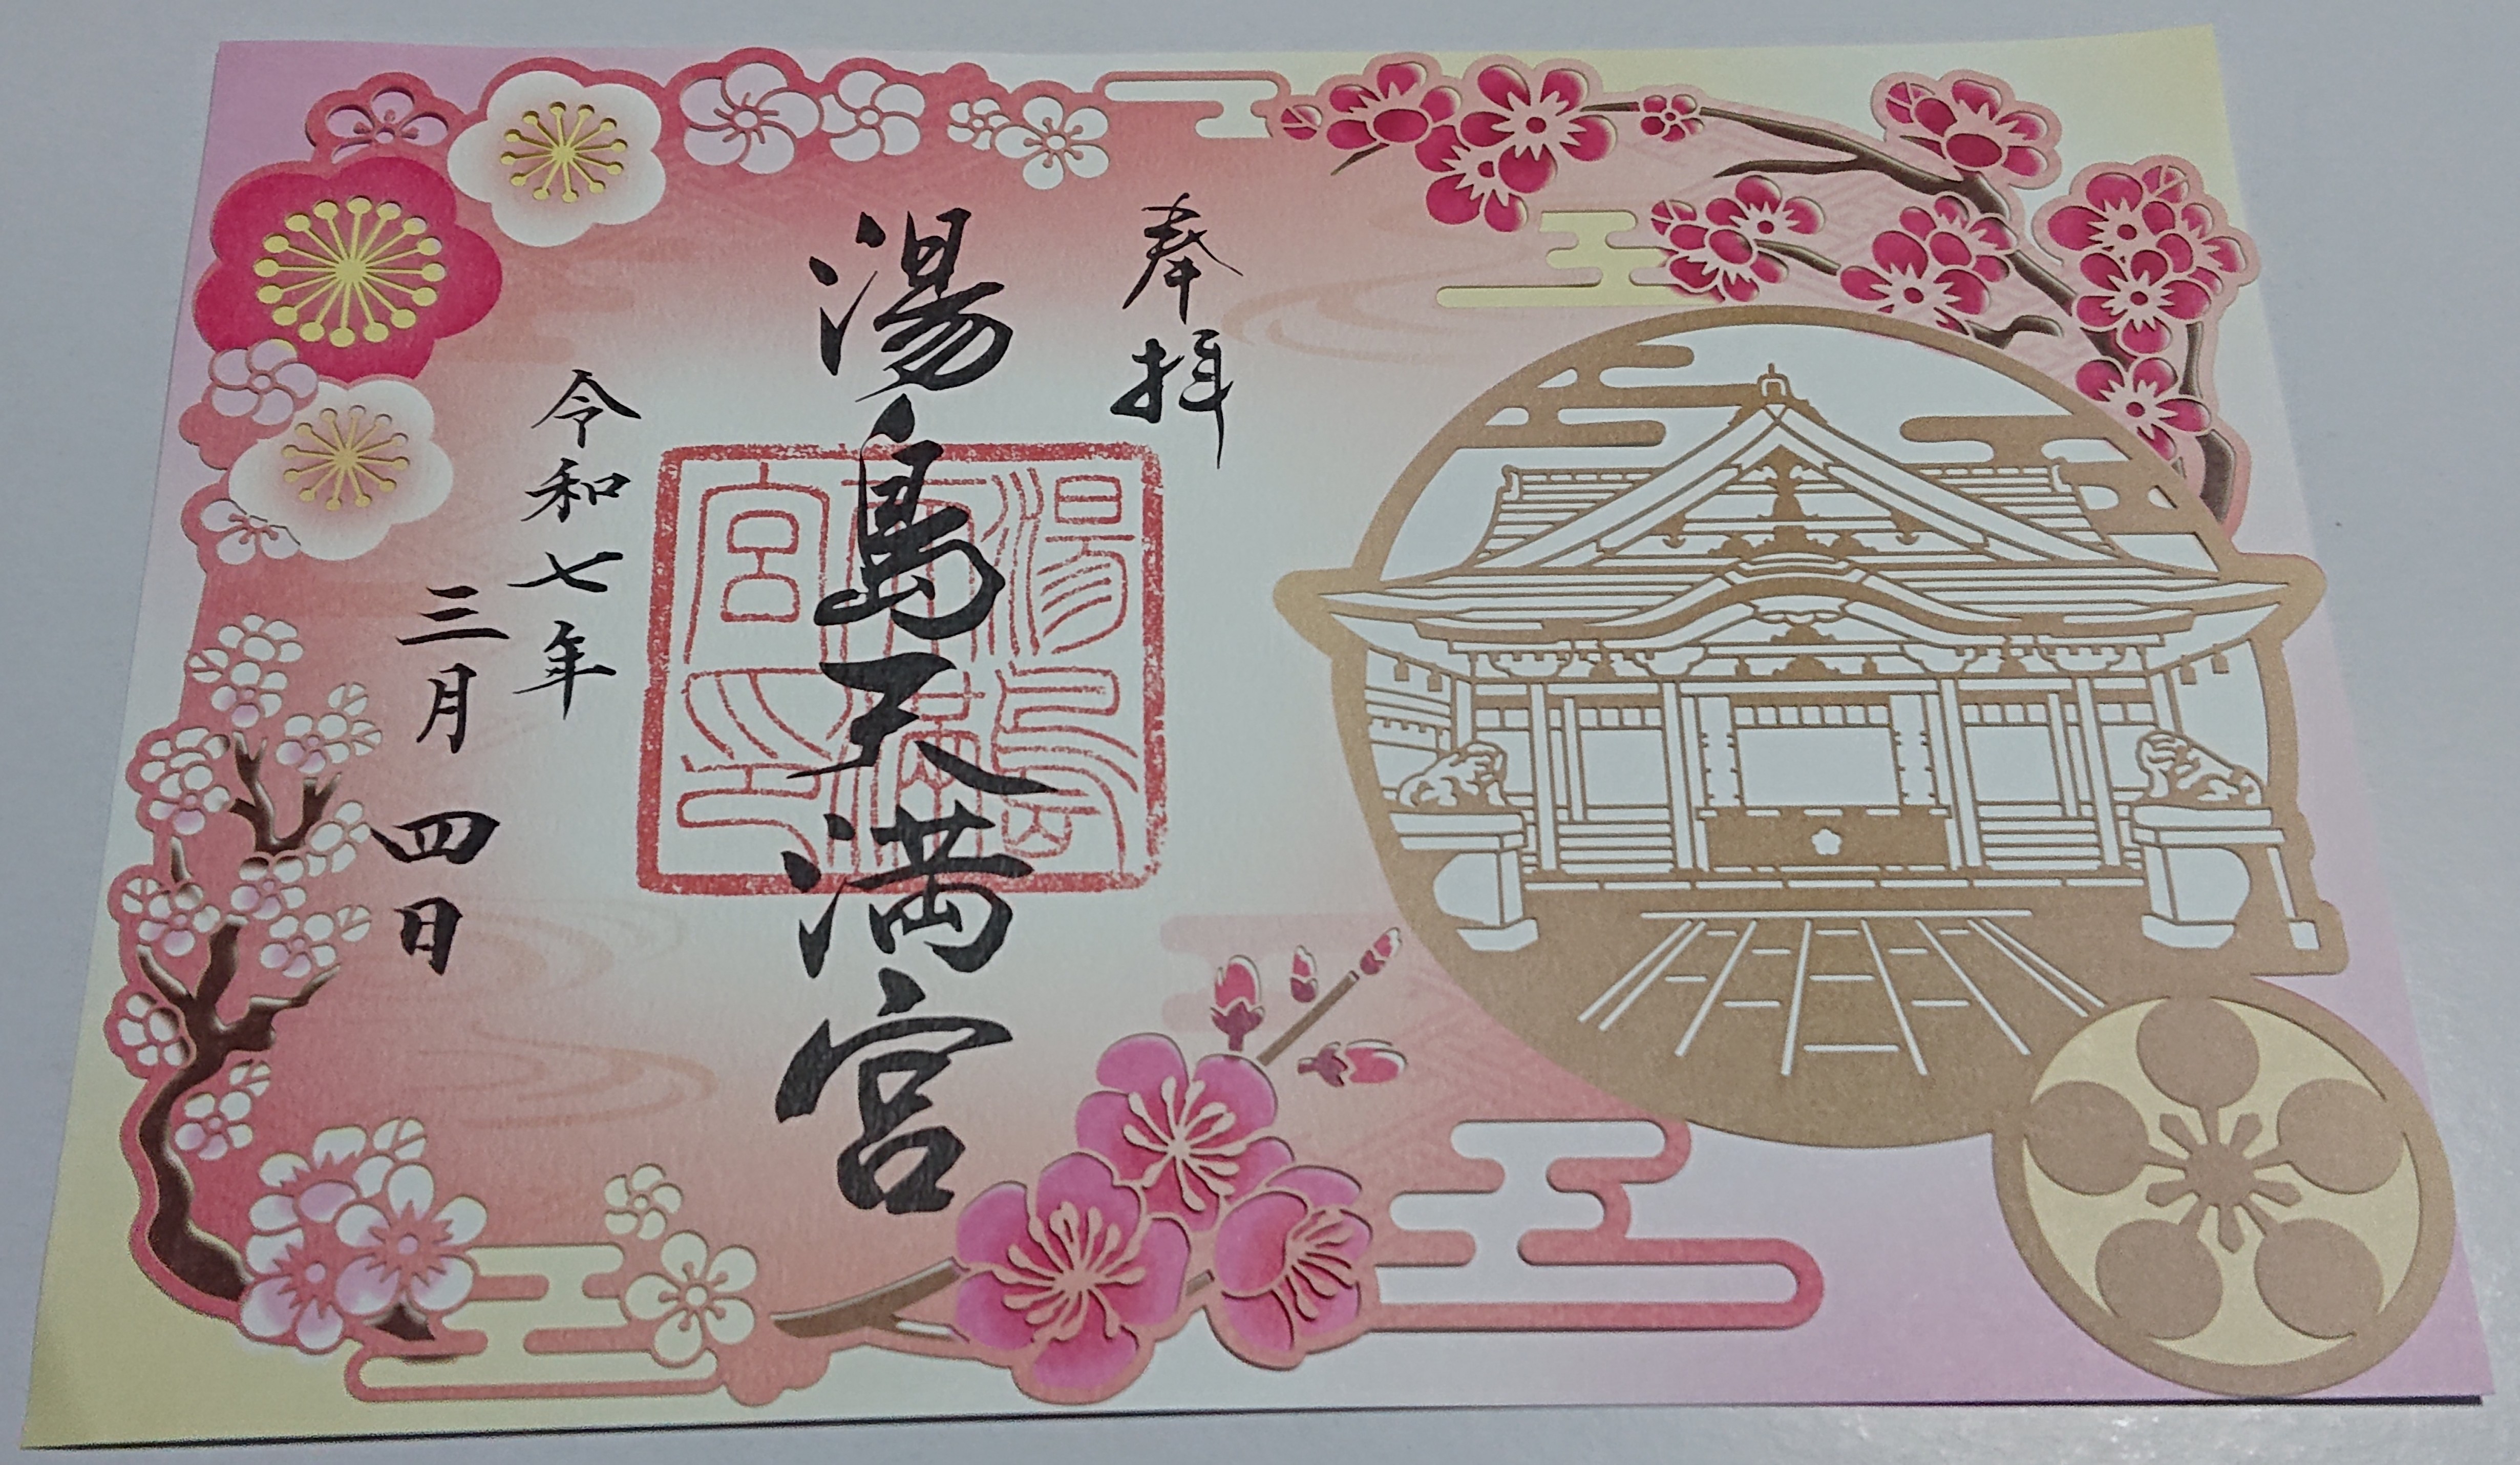 奉拝
湯島天満宮
湯島
天満
宮印
令和七年
三月四日